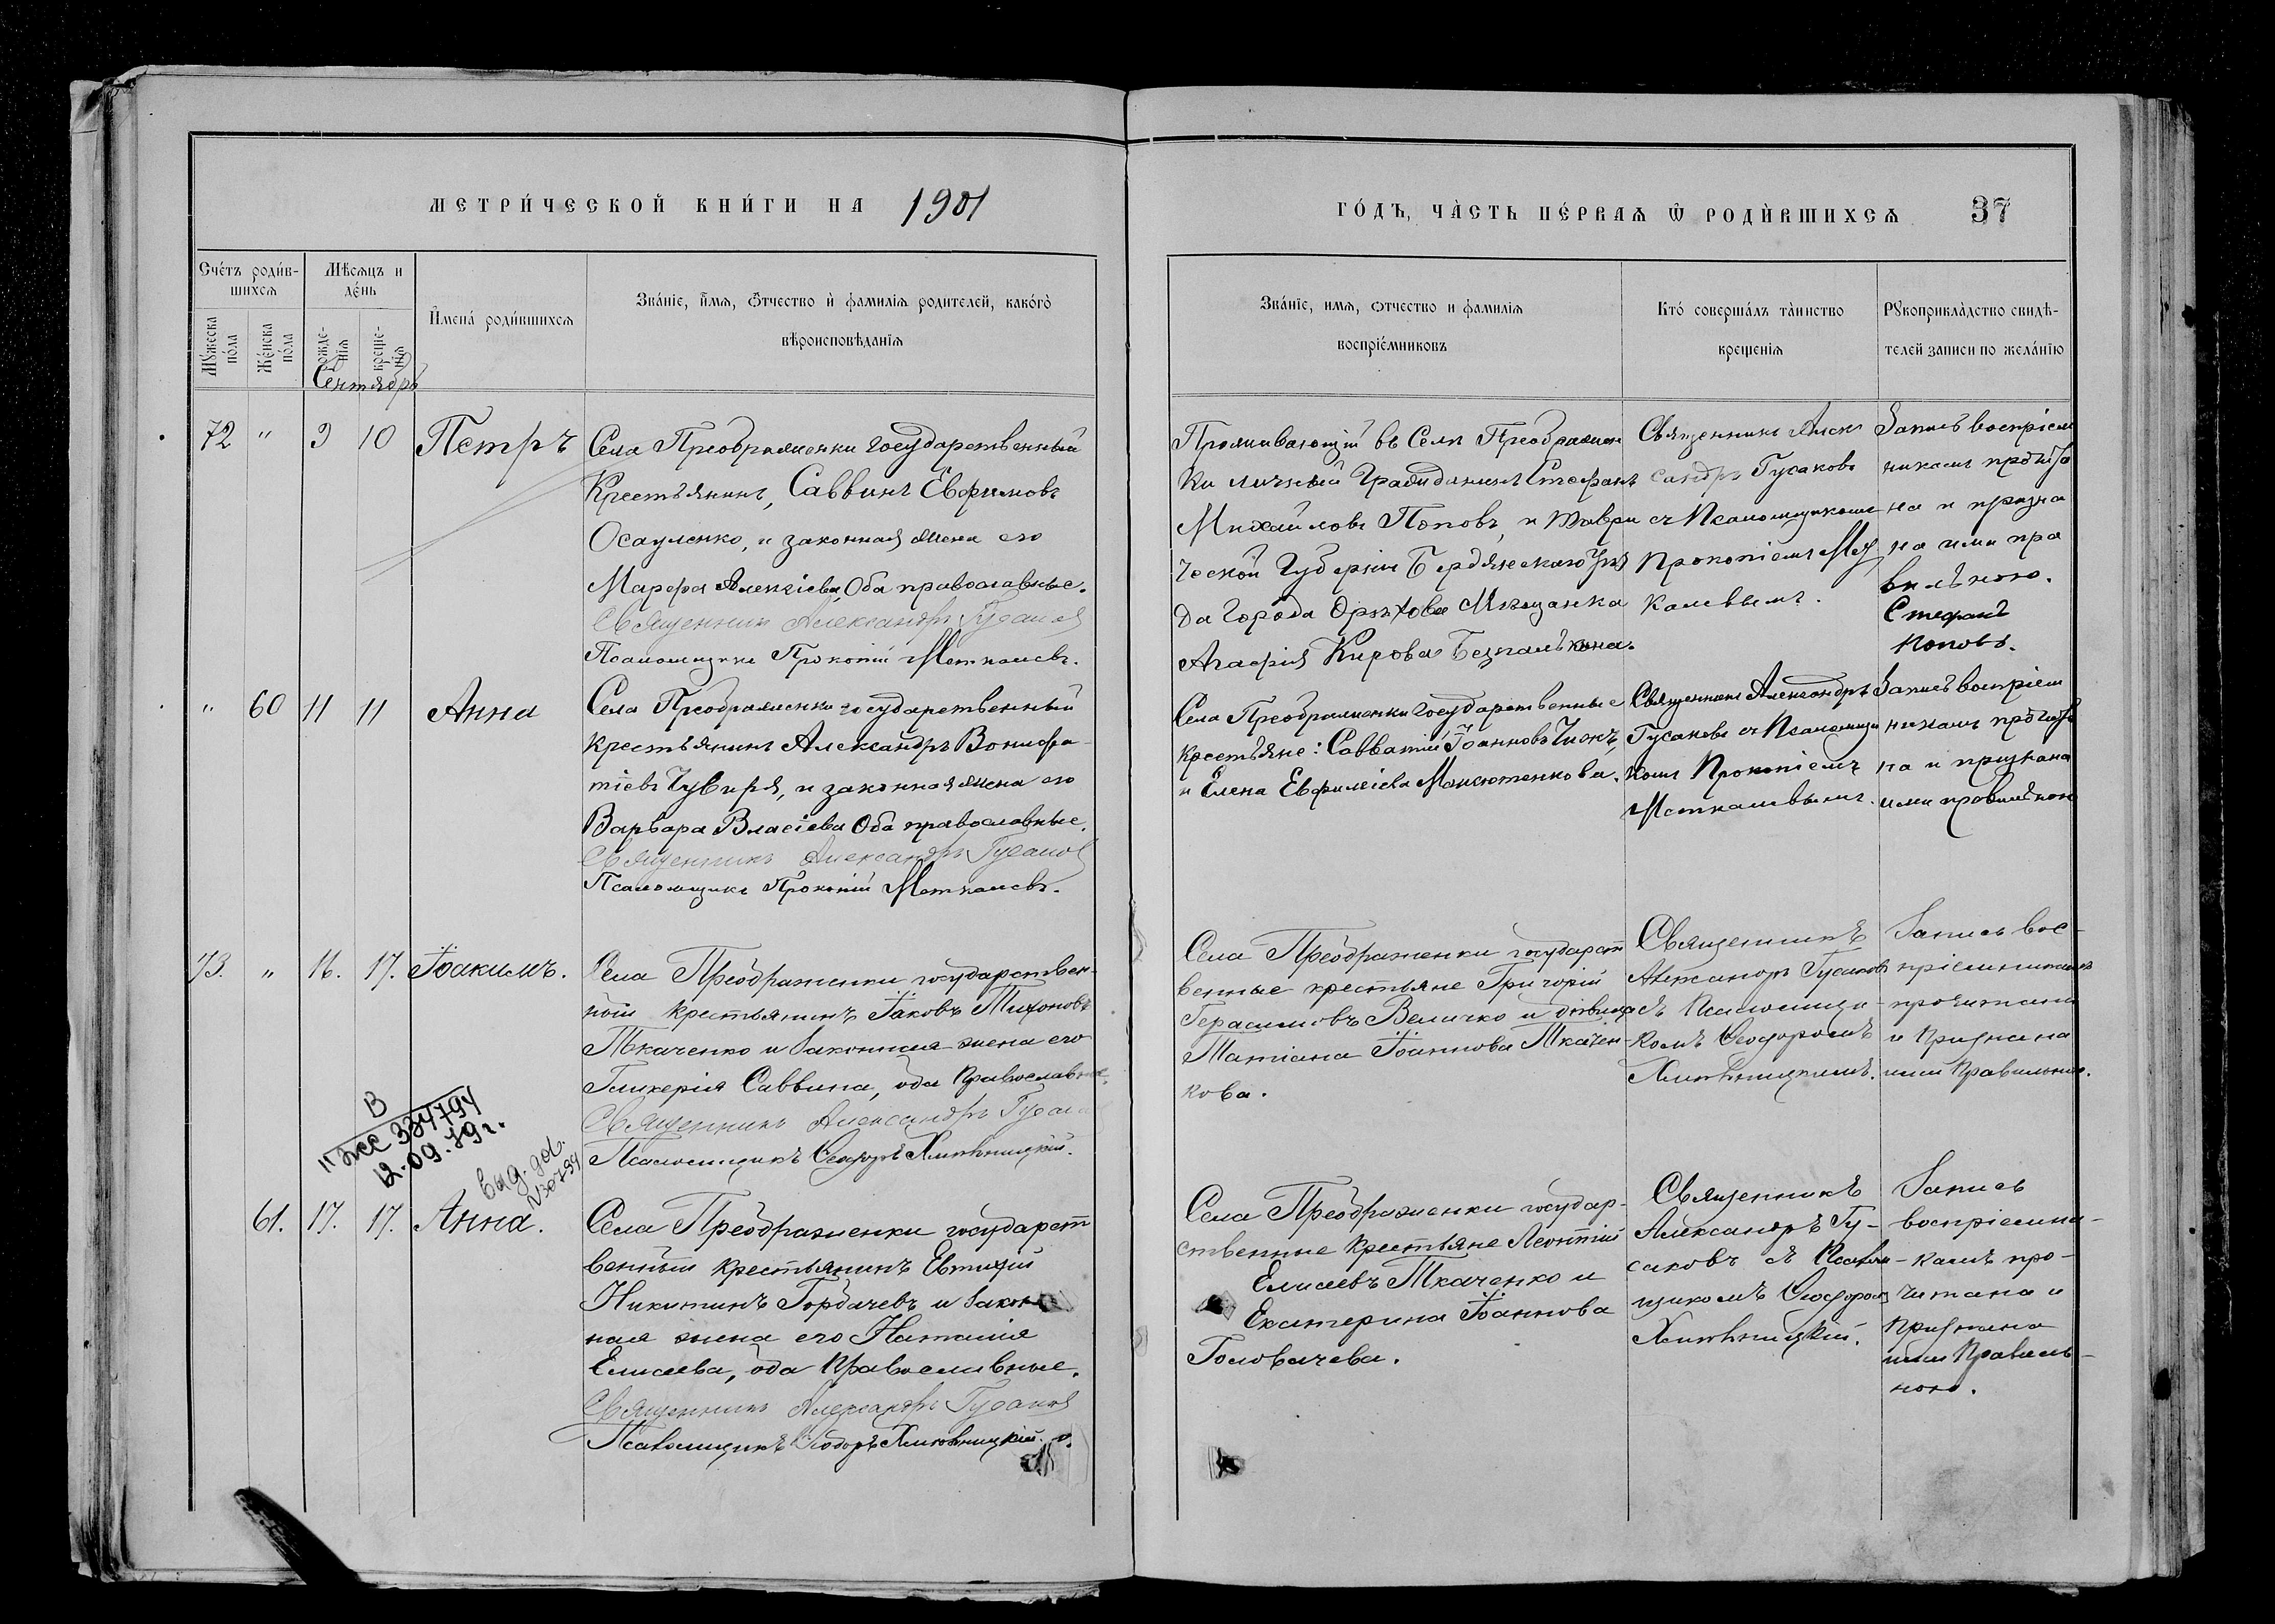 МЕТРИ́ЧЕСКОЙ КНИ́ГИ НА 1901
ГО́ДЪ, ЧА̀СТЬ ПЕ́РВАѦ Ѿ РОДЍВШИХСѦ 37
Сче́тъ роди́в-
шихсѧ
Мѣсѧцъ и
де́нь
Мꙋ́жеска
по́ла
Же́нска
по́ла
рожде-
нїѧ
креще-
нїѧ
Сентябрь
И̓мена̀ роди́вшихсѧ
Зва́нїе, и̓́мѧ, ѻ҆́тчество и҆ фамилїѧ родителей, како́гѡ
вѣроисповѣ́данїѧ
Зва́нїе, имѧ, ѻтчество и фамилїѧ
воспрїе́мниковъ
Кто́ соверша́лъ та̀инство
крещенїѧ
Рꙋкоприкла̀дство свидѣ-
телей записи по жела́нїю
72 " 9 10 Петръ
Села Преображенки государственный
Крестьянинъ, Саввинъ Евфимовъ
Осауленко, и законная жена его
Марфа Алексіева, Оба православные.
Священникъ Александръ Гусаковъ
Псаломщикъ Прокопій Меткалевъ.
Проживающій въ Селѣ Преображен
ки личный Гражданинъ Стефанъ
Михайловъ Поповъ, и Таври
ческой Губерніи Бердянскаго Уѣз
да Города Орѣхова Мѣщанка
Агафія Кирова Безпалькова.
Священникъ Алек
сандръ Гусаковъ
съ Псаломщикомъ
Прокопіемъ Мет
калевымъ.
Запись воспріем
никамъ прочита
на и призна
на ими пра
вильною.
Стефанъ
Поповъ.
" 60 11 11 Анна
Села Преображенки государственный
крестьянинъ Александръ Вонифа-
тіевъ Чувиря, и законная жена его
Варвара Власіева Оба православные.
Священникъ Александръ Гусаковъ
Псаломщикъ Прокопій Меткалевъ.
Села Преображенки Государственные
крестьяне: Савватій Іоанновъ
и Елена Евфиміева
Священникъ Александръ
Гусаковъ съ Псаломщи
комъ Прокопіемъ
Меткалевымъ.
Запись воспріем
никамъ прочита
на и признана
ими правильною
73. " 16. 17. Іоакимъ.
Села Преображенки государствен-
ный крестьянинъ Іаковъ Тихоновъ
Ткаченко и Законная жена его
Гликерія Саввина, оба Православные.
Священникъ Александръ Гусаковъ
Псаломщикъ Ѳеодоръ Хмѣльницкій.
Села Преображенки государст
венные крестьяне Григорій
Герасимовъ Величко и дѣвица
Татіана Іоаннова Ткачен-
кова.
Священникъ
Александръ Гусаковъ
съ Псаломщи-
комъ Ѳеодоромъ
Хмѣльницкимъ.
Запись вос-
пріемникамъ
прочитана
и Признана
ими Правильною.
В
"жсс 334794
12.09.79г.
выд.
61. 17. 17. Анна.
Села Преображенки государст
венный крестьянинъ Евтихій
Никитинъ Горбачевъ и Закон
ная жена его Наталія
Елисеева, оба Православные.
Священникъ Александръ Гусаковъ
Псаломщикъ Ѳеодоръ Хмѣльницкій.
Села Преображенки государ-
ственные Крестьяне Леонтій
Елисеевъ Ткаченко и
Екатерина Іоаннова
Головачева.
Священникъ
Александръ Гу-
саковъ съ Псалом-
щикомъ Ѳеодоромъ
Хмѣльницкій.
Запись
воспріемни-
камъ про-
читана и
Признана
ими Правиль-
ною.